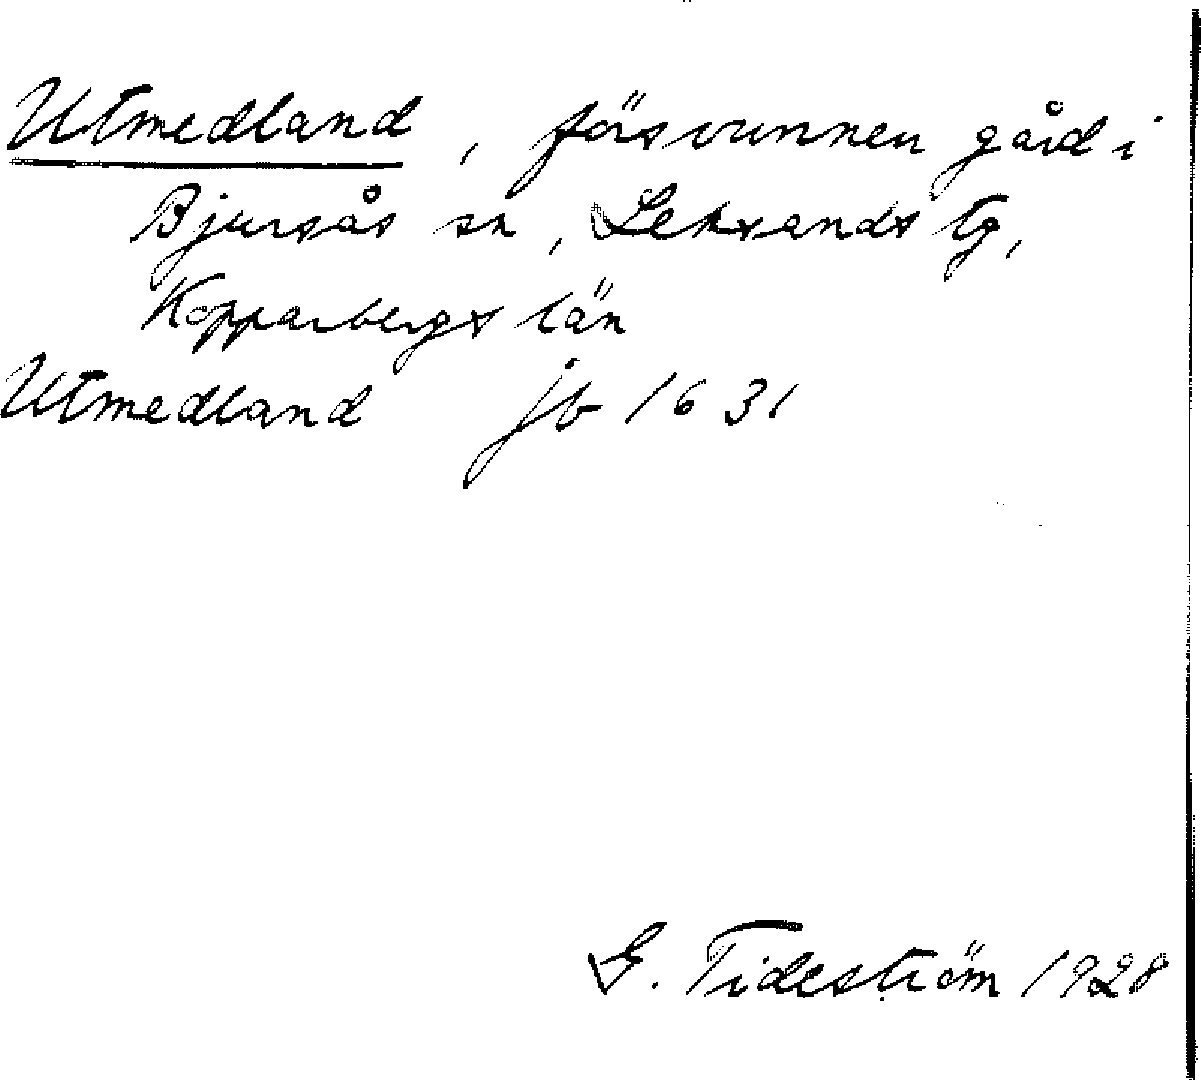 Utmedland, försvunnen gård i
Bjursås sn, Leksands tg,
Kopparbergs län
Utmedland jb 1631
G. Tideström 1928